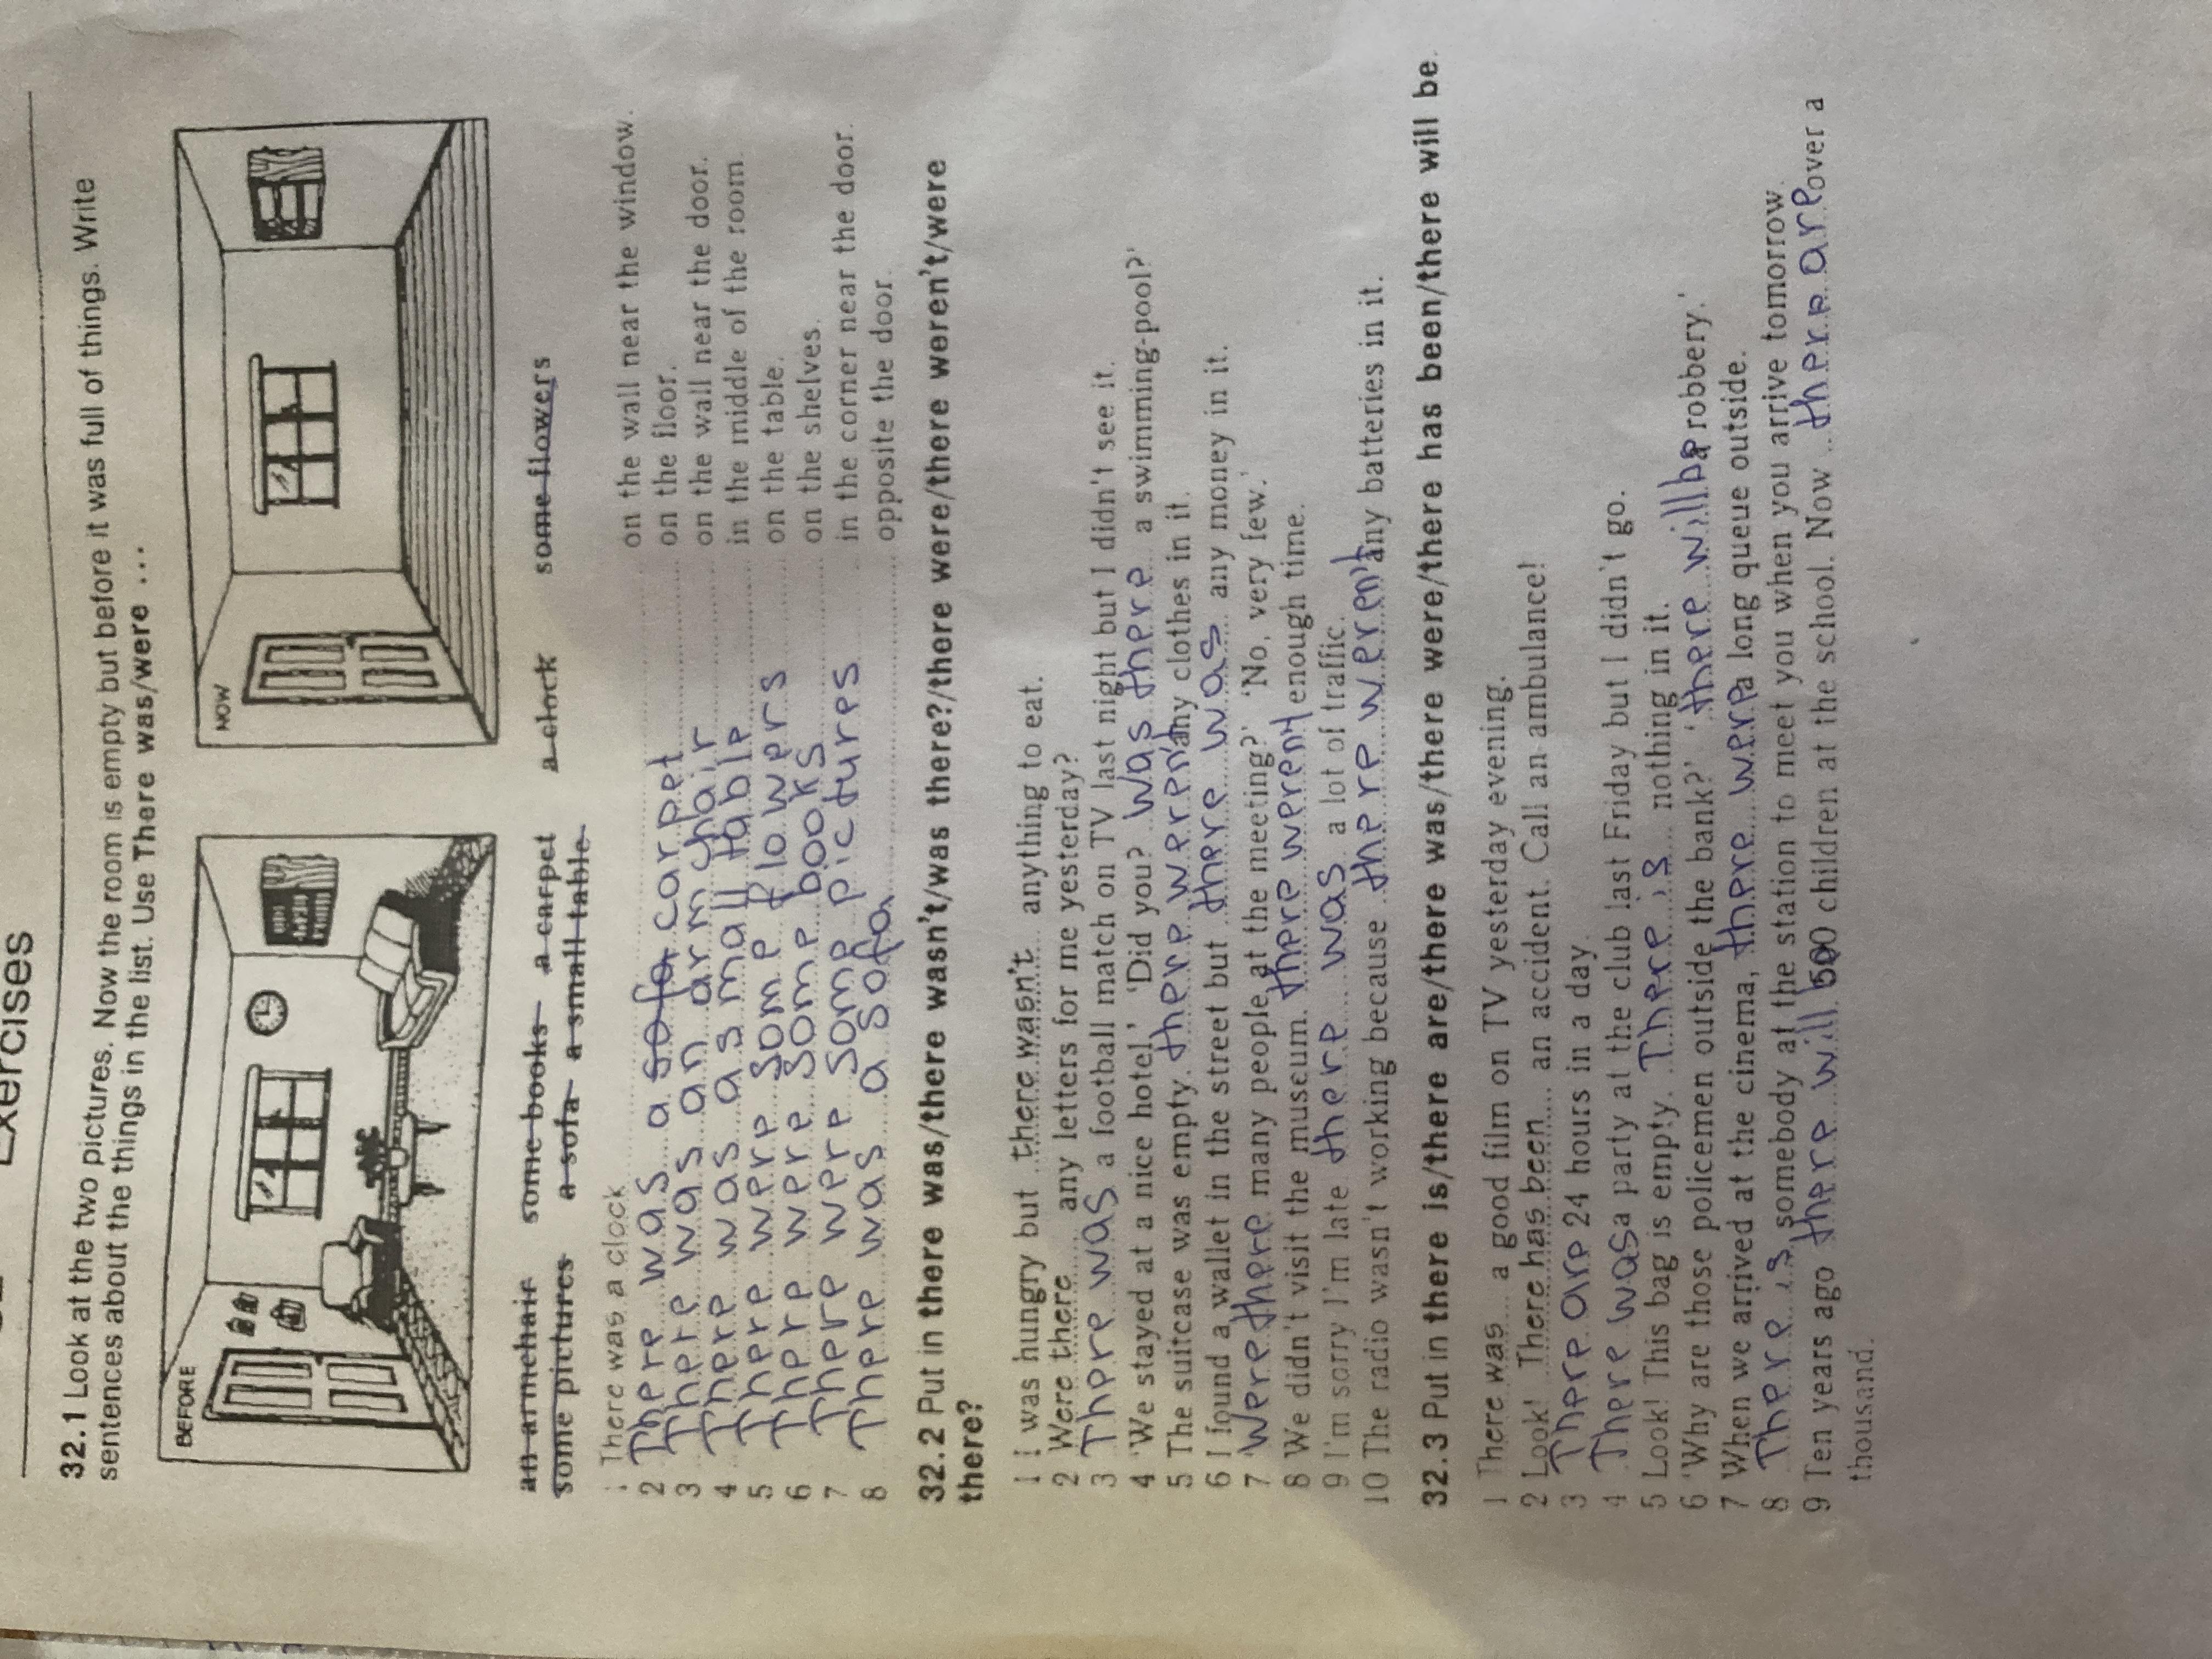 Exercises
32.1 Look at the two pictures. Now the room is empty but before it was full of things. Write
sentences about the things in the list. Use There was/were ...
BEFORE
NOW
an armchair some books a carpet a clock some flowers
some pictures a sofa a small table
1 There was a clock on the wall near the window.
2 There was a sofa carpet on the floor.
3 There was an armchair on the wall near the door.
4 There was a small table in the middle of the room.
5 There were some flowers on the table.
6 There were some books on the shelves.
7 There were some pictures in the corner near the door.
8 There was a sofa opposite the door.
32.2 Put in there was/there wasn't/was there?/there were/there weren't/were
there?
1 I was hungry but there wasn't anything to eat.
2 Were there any letters for me yesterday?
3 There was a football match on TV last night but I didn't see it.
4 'We stayed at a nice hotel.' 'Did you? was there a swimming-pool?'
5 The suitcase was empty. there weren't any clothes in it.
6 I found a wallet in the street but there was any money in it.
7 'were there many people at the meeting?' 'No, very few.'
8 We didn't visit the museum. there weren't enough time.
9 I'm sorry I'm late there was a lot of traffic.
10 The radio wasn't working because there weren't any batteries in it.
32.3 Put in there is/there are/there was/there were/there has been/there will be.
1 There was a good film on TV yesterday evening.
2 Look! There has been an accident. Call an ambulance!
3 There are 24 hours in a day.
4 There was a party at the club last Friday but I didn't go.
5 Look! This bag is empty. There is nothing in it.
6 'Why are those policemen outside the bank?' 'there will be a robbery.'
7 When we arrived at the cinema, there were a long queue outside.
8 There is somebody at the station to meet you when you arrive tomorrow.
9 Ten years ago there will 500 children at the school. Now there are over a
thousand.